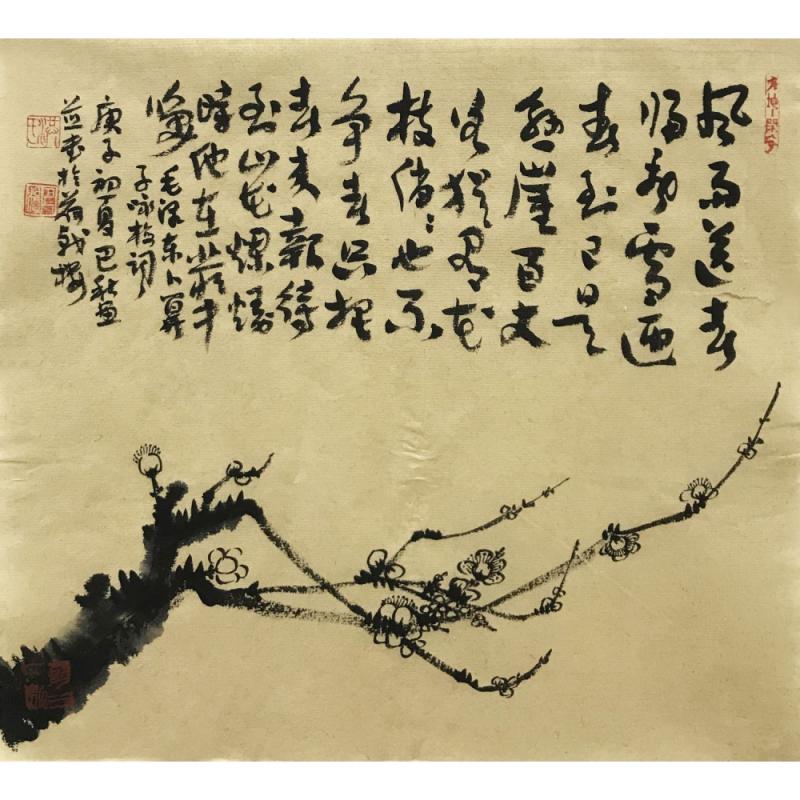 风雨送春
归飞雪迎
春到已是
悬崖百丈
冰犹有花
枝俏〻也不
争春只把
春来報待
到山花爛漫
時他在叢中
笑 毛泽东卜算
子咏梅词
庚子初夏巴秋画
並书於荷戟楼